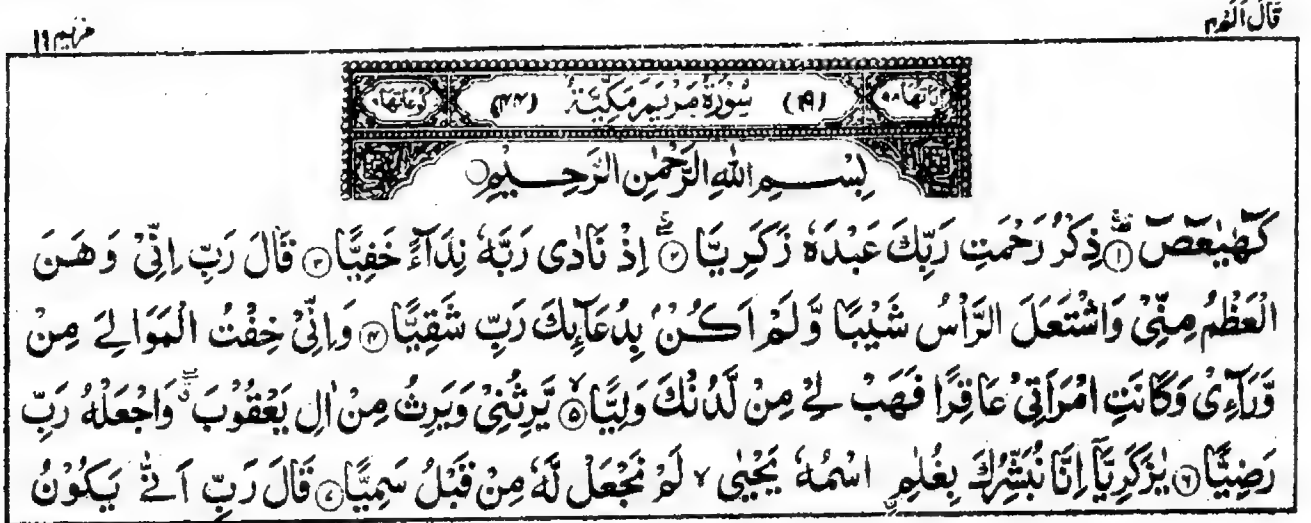 قَالَ اَلَمْ ۱۶
مَرْيَم ۱۹
اٰيَاتُهَا ۹۸ (۱۹) سُوْرَةُ مَرْيَمَ مَكِّيَّةٌ (۴۴) رُكُوْعَاتُهَا ۶
بِسْمِ اللّٰهِ الرَّحْمٰنِ الرَّحِيْمِ
كٓهٰيٰعٓصٓ ۚ۝۱ ذِكْرُ رَحْمَتِ رَبِّكَ عَبْدَهٗ زَكَرِيَّا ۖۚ۝۲ اِذْ نَادٰى رَبَّهٗ نِدَآءً خَفِيًّا ۝۳ قَالَ رَبِّ اِنِّيْ وَهَنَ
الْعَظْمُ مِنِّيْ وَاشْتَعَلَ الرَّاْسُ شَيْبًا وَّلَمْ اَكُنْۢ بِدُعَآئِكَ رَبِّ شَقِيًّا ۝۴ وَاِنِّيْ خِفْتُ الْمَوَالِيَ مِنْ
وَّرَآءِيْ وَكَانَتِ امْرَاَتِيْ عَاقِرًا فَهَبْ لِيْ مِنْ لَّدُنْكَ وَلِيًّا ۙ۝۵ يَّرِثُنِيْ وَيَرِثُ مِنْ اٰلِ يَعْقُوْبَ ۖ وَاجْعَلْهُ رَبِّ
رَضِيًّا ۝۶ يٰزَكَرِيَّآ اِنَّا نُبَشِّرُكَ بِغُلٰمِ ۨ اسْمُهٗ يَحْيٰى ۙ لَمْ نَجْعَلْ لَّهٗ مِنْ قَبْلُ سَمِيًّا ۝۷ قَالَ رَبِّ اَنّٰى يَكُوْنُ